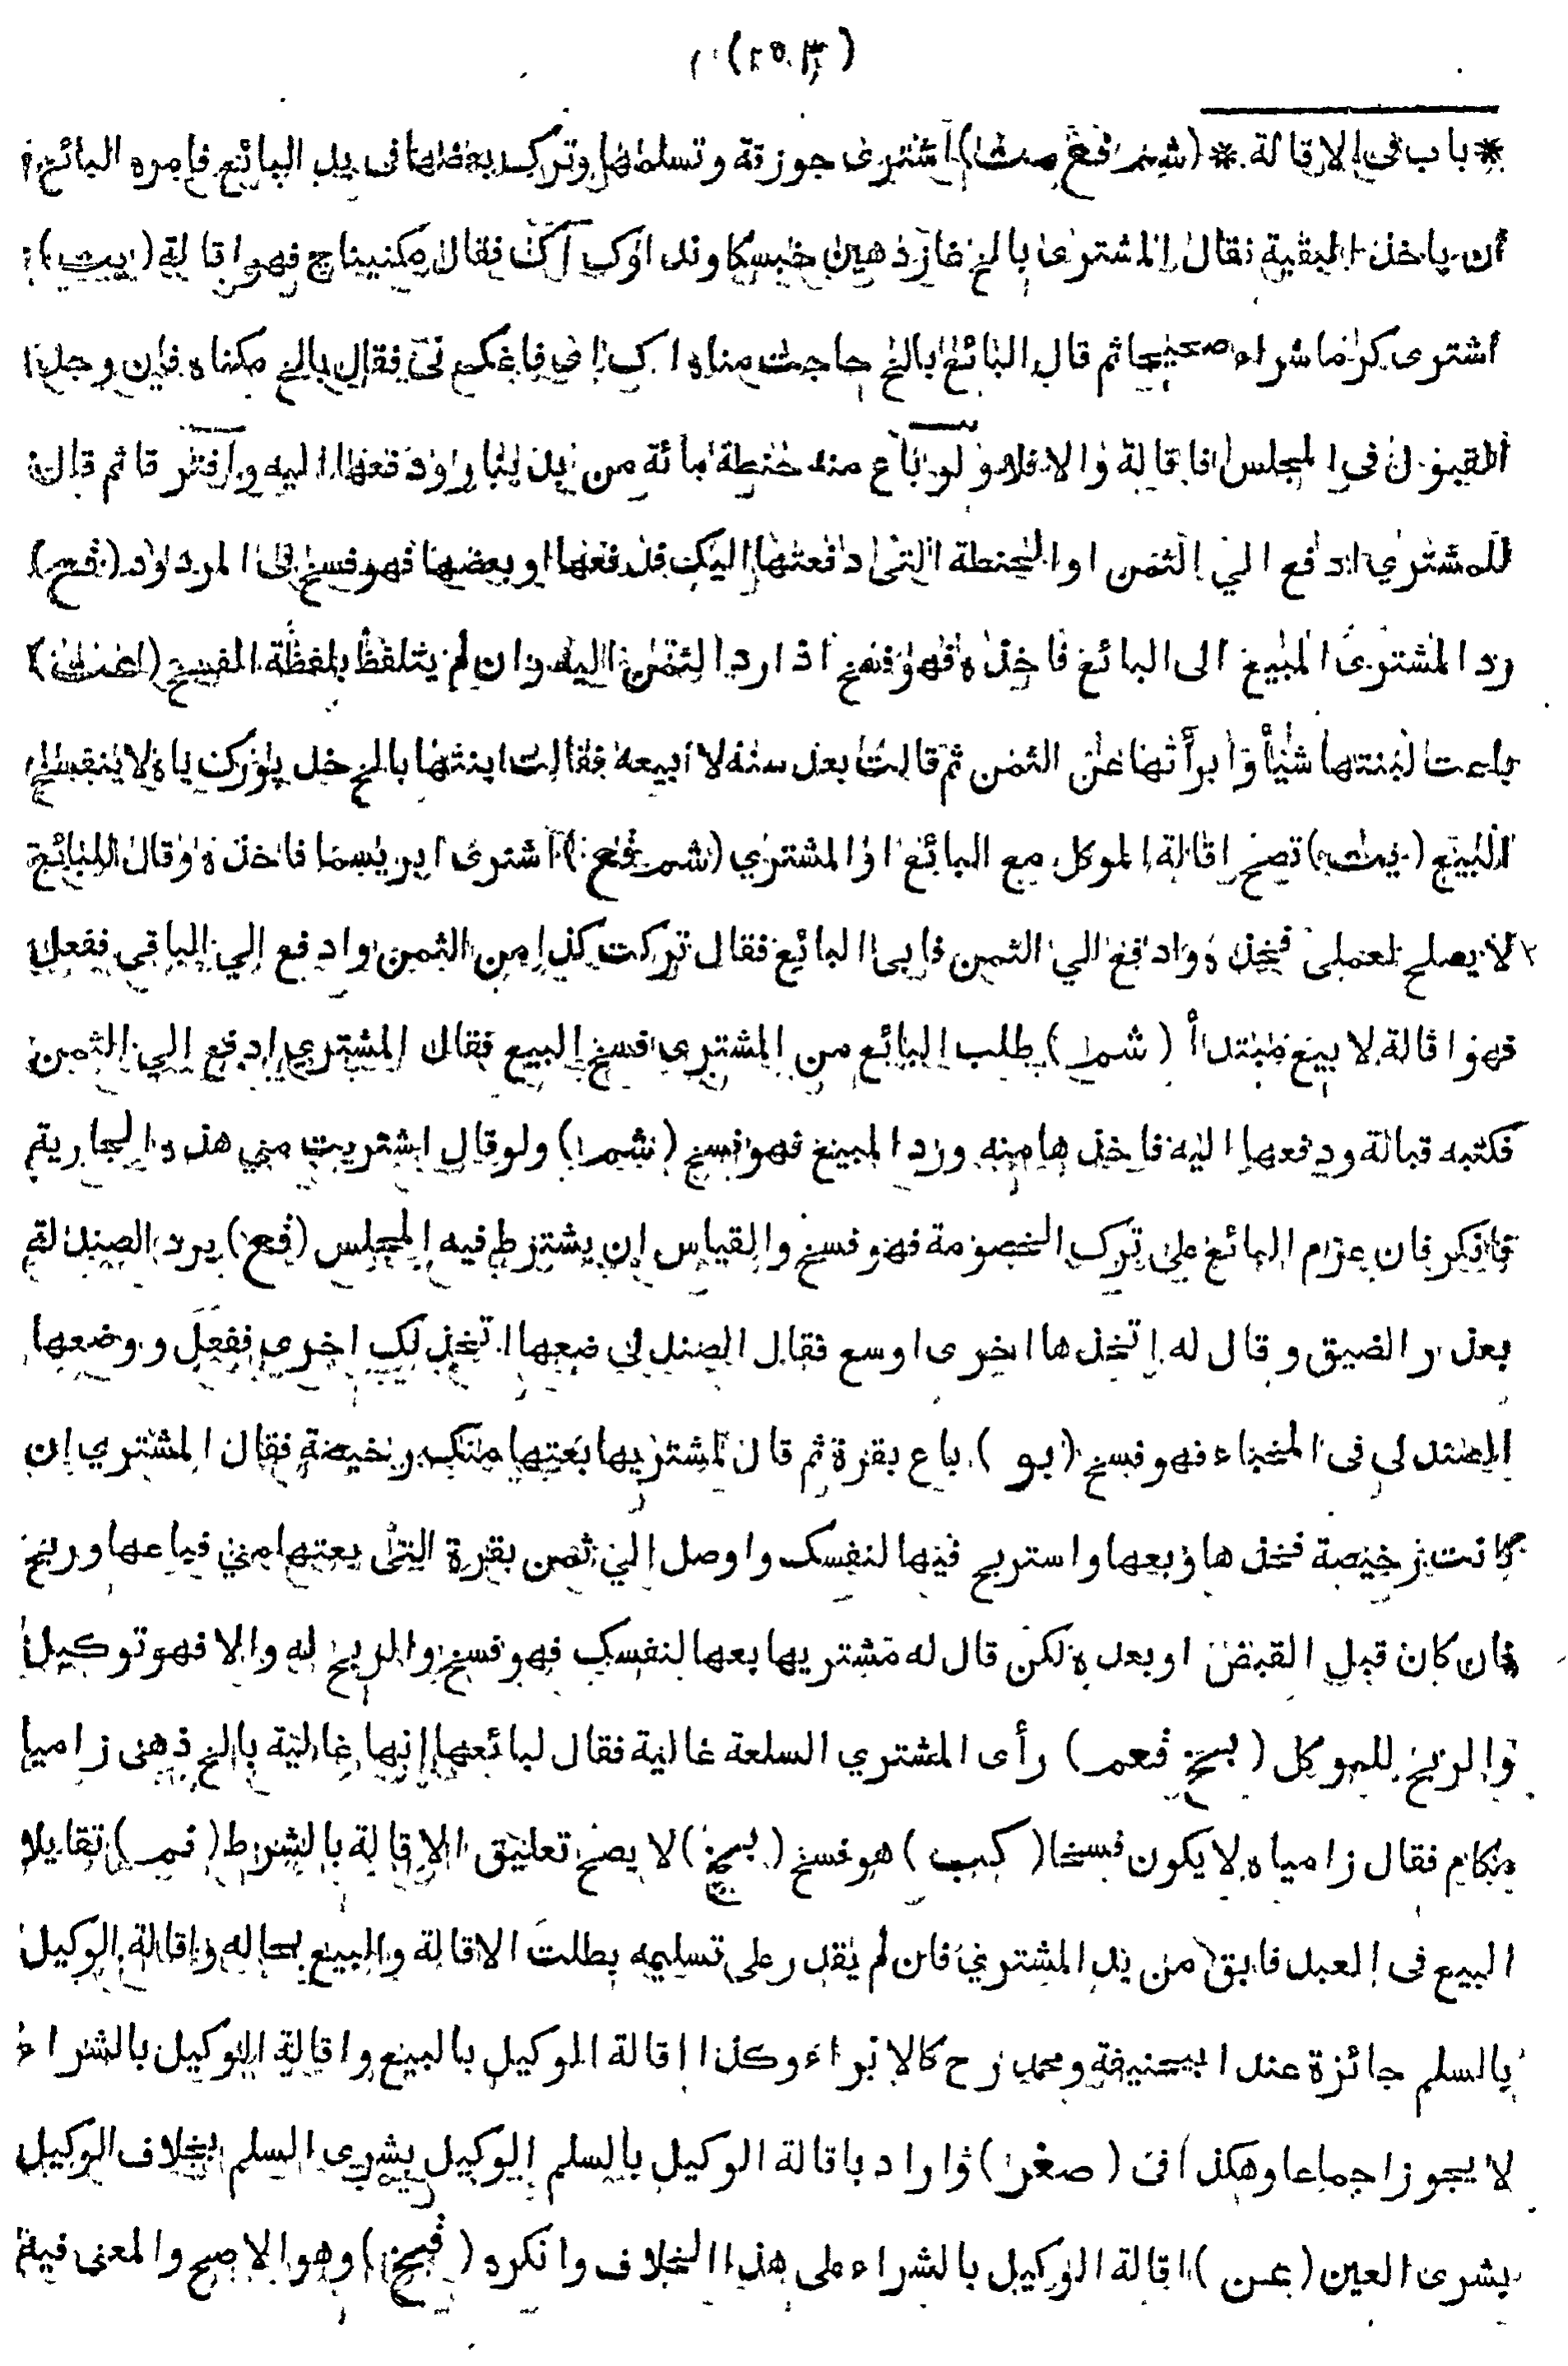 * باب فى الاقالة * (شم فع مت) اشترى جوزقة وتسلمها وترك بعضها فى يد البائع فامره البائع
ان ياخذ البقية فقال المشترى بالخ فهو اقالة (بت)
اشترى كرما شراء صحيحا ثم قال البائع بالخ فقال بالخ فان وجد
القبول فى المجلس فاقالة والا فلا ولو باع منه حنطة بمائة من بدينار ودفعها اليه وافترقا ثم قال
للمشتري ادفع الي الثمن او الحنطة التى دفعتها اليك فدفعها او بعضها فهو فسخ فى المردود (فع)
رد المشترى المبيع الى البائع فاخذه فهو فسخ اذا رد الثمن اليه وان لم يتلفظ بلفظة الفسخ
باعت لبنتها شيأ وابرأتها عن الثمن ثم قالت بعد سنة لا ابيعه فقالت ابنتها بالخ لا ينفسخ
البيع (بت) تصح اقالة الموكل مع البائع او المشتري (شم فع) اشترى ابريسما فاخذه وقال للبائع
لا يصلح لعملى فخذه وادفع الي الثمن فابى البائع فقال تركت كذا من الثمن وادفع الي الباقي ففعل
فهو اقالة لا بيع مبتدأ (شم) طلب البائع من المشترى فسخ البيع فقال المشترى ادفع الي الثمن
فكتبه قبالة ودفعها اليه فاخذها منه ورد المبيع فهو فسخ (شم) ولو قال اشتريت مني هذه الجارية
فانكر فان عزم البائع على ترك الخصومة فهو فسخ والقياس ان يشترط فيه المجلس (فع) يرد الصندلة
بعذر الضيق وقال له اتخذها اخرى اوسع فقال الصندلي ضعها اتخذ لك اخرى ففعل ووضعها
الصندلي فى المخباء فهو فسخ (بو) باع بقرة ثم قال لمشتريها بعتها منك رخيصة فقال المشترى ان
كانت رخيصة فخذها وبعها واستربح فيها لنفسك واوصل الي ثمن بقرة التى بعتها مني فباعها وربح
فان كان قبل القبض او بعده لكن قال له مشتريها بعها لنفسك فهو فسخ والربح له والا فهو توكيل
والربح للموكل (بخ فعم) رأى المشتري السلعة غالية فقال لبائعها انها غالية بالخ
فقال لا يكون فسخا (كب) هو فسخ (بخ) لا يصح تعليق الاقالة بالشرط (نم) تقايلا
البيع فى العبد فابق من يد المشتري فان لم يقدر على تسليمه بطلت الاقالة والبيع بحاله واقالة الوكيل
بالسلم جائزة عند ابيحنيفة ومحمد رح كالابراء وكذا اقالة الوكيل بالبيع واقالة الوكيل بالشراء
لا يجوز اجماعا وهكذا فى (صغر) واراد باقالة الوكيل بالسلم الوكيل بشرى السلم بخلاف الوكيل
بشرى العين (عن) اقالة الوكيل بالشراء على هذا الخلاف وانكره (فبخ) وهو الاصح والمعنى فيه